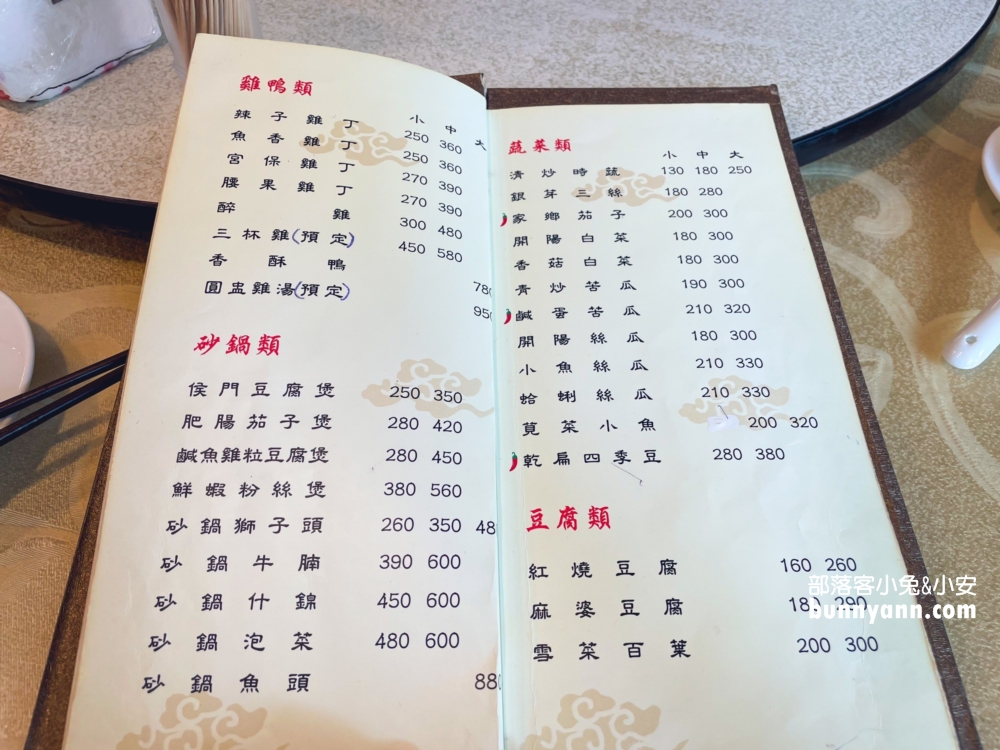 雞鴨類
小 中 大
辣子雞丁 250 360
魚香雞丁 250 360
宮保雞丁 270 390
腰果雞丁 270 390
醉雞 300 480
三杯雞(預定) 450 580
香酥鴨 780
圓盅雞湯(預定) 950
砂鍋類
侯門豆腐煲 250 350
肥腸茄子煲 280 420
鹹魚雞粒豆腐煲 280 450
鮮蝦粉絲煲 380 560
砂鍋獅子頭 260 350 48
砂鍋牛腩 390 600
砂鍋什錦 450 600
砂鍋泡菜 480 600
砂鍋魚頭 880
蔬菜類
小 中 大
清炒時蔬 130 180 250
銀芽三絲 180 280
家鄉茄子 200 300
開陽白菜 180 300
香菇白菜 180 300
青炒苦瓜 190 300
鹹蛋苦瓜 210 320
開陽絲瓜 180 300
小魚絲瓜 210 330
蛤蜊絲瓜 210 330
莧菜小魚 200 320
乾扁四季豆 280 380
豆腐類
紅燒豆腐 160 260
麻婆豆腐 180 290
雪菜百葉 200 300
部落客小兔&小安
bunnyann.com